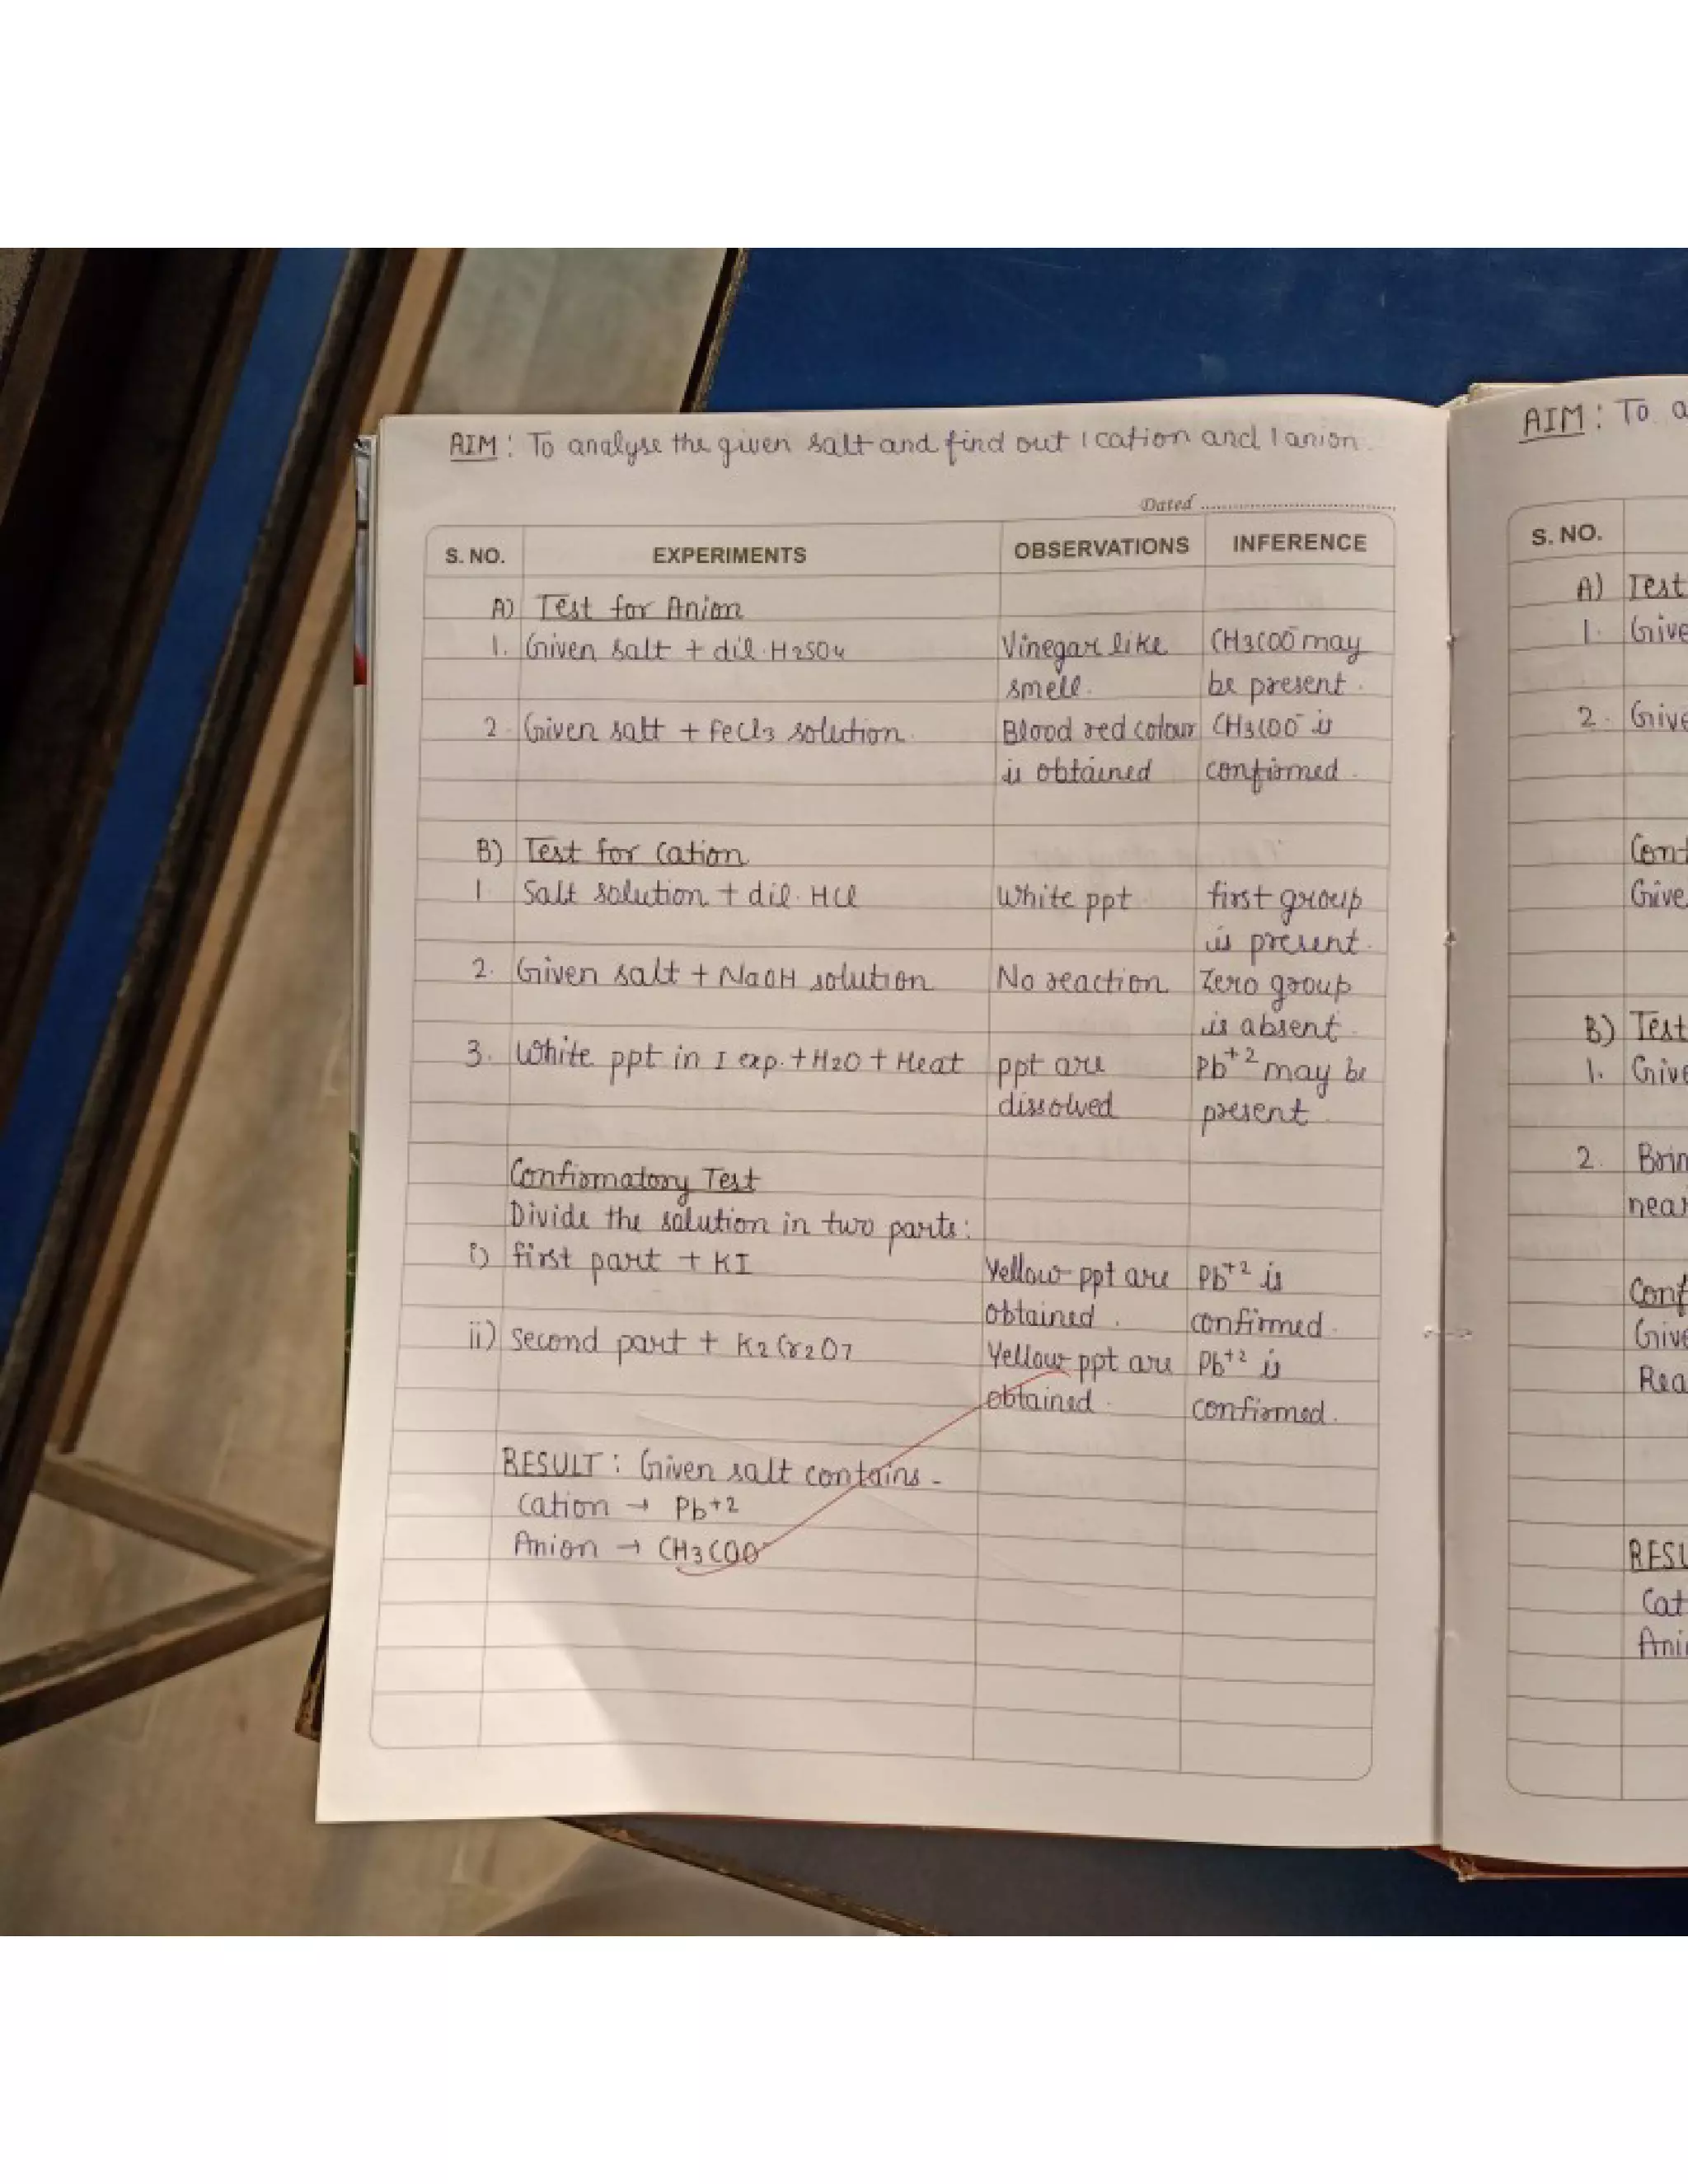 AIM : To analyse the given salt and find out 1 cation and 1 anion.
Dated
S. NO. EXPERIMENTS OBSERVATIONS INFERENCE
A) Test for Anion
1. Given salt + dil. H2SO4 Vinegar like CH3COO⁻ may
smell. be present.
2. Given salt + FeCl3 solution. Blood red colour CH3COO⁻ is
is obtained confirmed.
B) Test for Cation
1 Salt solution + dil. HCl White ppt first group
is present.
2. Given salt + NaOH solution No reaction Zero group
is absent.
3. White ppt in I exp. + H2O + Heat ppt are Pb+2 may be
dissolved present.
Confirmatory Test
Divide the solution in two parts:
i) first part + KI Yellow ppt are Pb+2 is
obtained. confirmed.
ii) Second part + K2Cr2O7 Yellow ppt are Pb+2 is
obtained. confirmed.
RESULT : Given salt contains -
Cation → Pb+2
Anion → CH3COO⁻
AIM : To
S. NO.
A) Test
1.
2.
B) Test
1.
2.